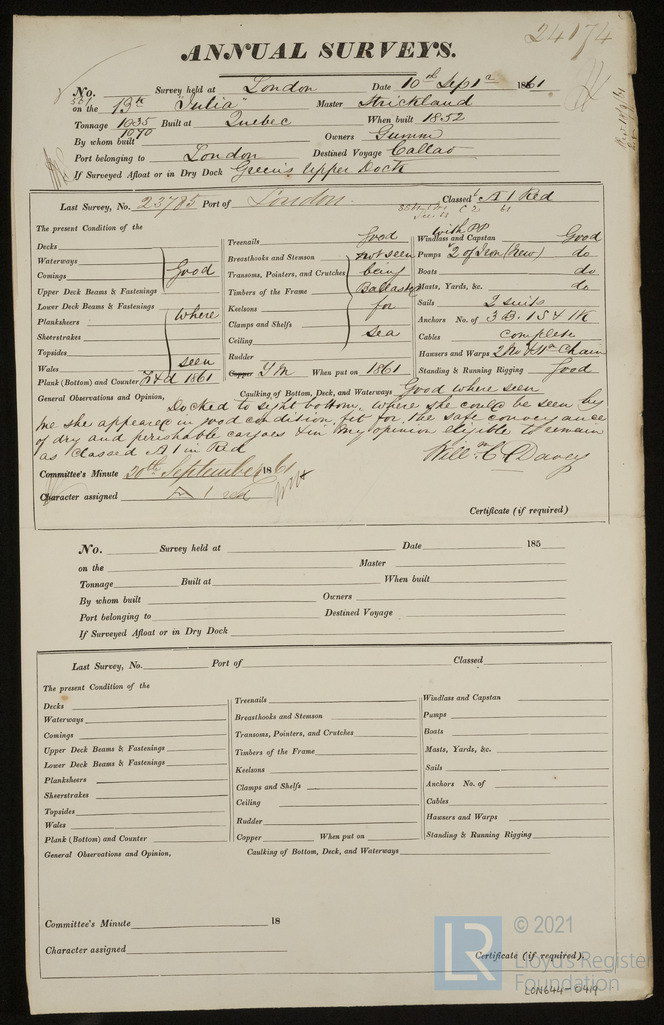 24174
ANNUAL SURVEYS.
No. Survey held at London Date 10th Sept 1861
on the 13th "Julia" Master Strickland
Tonnage 1035 1070 Built at Quebec When built 1852
By whom built Owners Gumm
Port belonging to London Destined Voyage Callao
If Surveyed Afloat or in Dry Dock Green's Upper Dock
Last Survey, No. 23785 Port of London Classed A 1 Red
The present Condition of the
Decks
Waterways
Comings
Upper Deck Beams & Fastenings
Lower Deck Beams & Fastenings
Planksheers
Sheerstrakes
Topsides
Wales
Good where seen
Plank (Bottom) and Counter 1861
Treenails Good
Breasthooks and Stemson
Transoms, Pointers, and Crutches
Timbers of the Frame
Keelsons
Clamps and Shelfs
Ceiling
not seen being Ballasted for sea
Rudder
Copper Y M When put on 1861
Windlass and Capstan Good
Pumps 2 of Iron do
Boats do
Masts, Yards, &c. do
Sails 2 suits
Anchors No. of 3 B. 1 S & 1 K
Cables complete
Hawsers and Warps Chain
Standing & Running Rigging Good
General Observations and Opinion, Caulking of Bottom, Deck, and Waterways Good where seen
Docked to sight bottom, where she could be seen by
me she appeared in good condition, fit for the safe conveyance
of dry and perishable cargoes & in my opinion eligible to remain
as classed A 1 in Red
Willm C Davey
Committee's Minute 20th September 1861
Character assigned A 1 red
Certificate (if required)
No. Survey held at Date 185
on the Master
Tonnage Built at When built
By whom built Owners
Port belonging to Destined Voyage
If Surveyed Afloat or in Dry Dock
Last Survey, No. Port of Classed
The present Condition of the
Decks
Waterways
Comings
Upper Deck Beams & Fastenings
Lower Deck Beams & Fastenings
Planksheers
Sheerstrakes
Topsides
Wales
Plank (Bottom) and Counter
Treenails
Breasthooks and Stemson
Transoms, Pointers, and Crutches
Timbers of the Frame
Keelsons
Clamps and Shelfs
Ceiling
Rudder
Copper When put on
Windlass and Capstan
Pumps
Boats
Masts, Yards, &c.
Sails
Anchors No. of
Cables
Hawsers and Warps
Standing & Running Rigging
General Observations and Opinion, Caulking of Bottom, Deck, and Waterways
Committee's Minute 18
Character assigned
Certificate (if required).
LR © 2021
Lloyd's Register
Foundation
LON644-0419